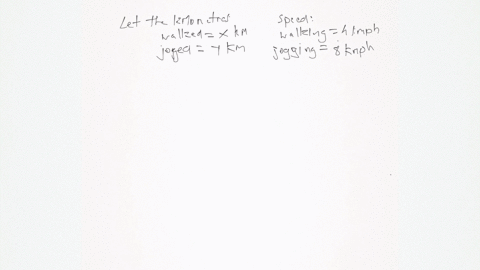 Let the kilometres
walked = x km
joged = y km
Speed:
walking = 4 kmph
jogging = 8 kmph